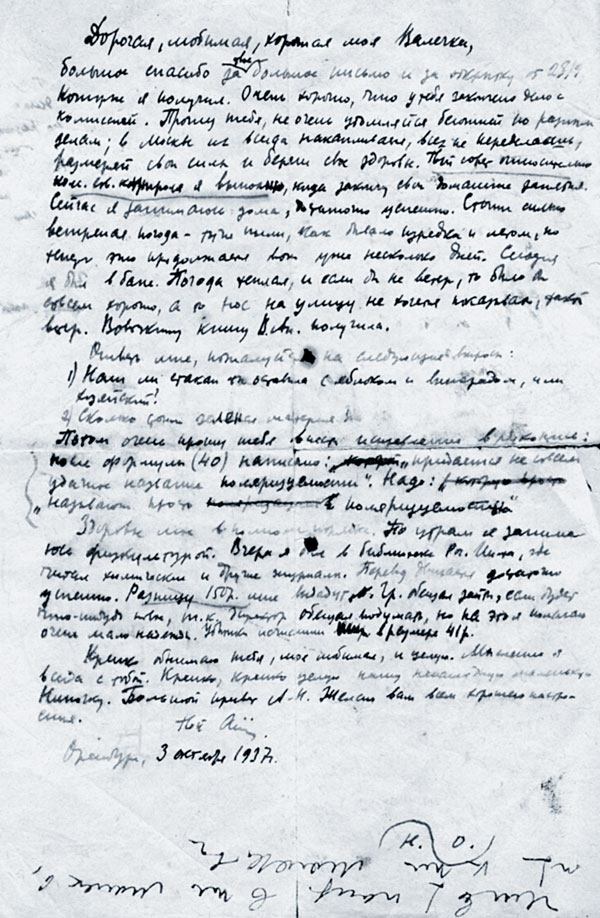 Дорогая, любимая, хорошая моя Валечка,
большое спасибо за большое письмо и за открытку от 28/9
которые я получил. Очень хорошо, что у тебя закончено дело с
комиссией. Прошу тебя, не очень утомляйся беготней по разным
делам; в Москве их всегда накапливается, всех не переделаешь,
размеряй свои силы и береги свое здоровье. Твой совет относительно
я выполню, когда закончу свои домашние занятия.
Сейчас я занимаюсь дома, достаточно успешно. Стоит сильно
ветреная погода - тучи пыли, как бывало изредка и летом, но
теперь это продолжается вот уже несколько дней. Сегодня
я был в бане. Погода теплая, и если бы не ветер, то было бы
совсем хорошо, а то нос на улицу не хочется показывать, такой
ветер. Вовочкину книгу получила.
Ответь мне, пожалуйста на следующий вопрос:
1) Наш ли стакан ты оставила с яблоком и виноградом, или
хозяйский?
2) Сколько стоит зеленая материя?
Потом очень прошу тебя внести исправление в рукопись:
после формулы (40) написано: „придается не совсем
удачное название поляризуемости". Надо:
„называют просто поляризуемостью"
Здоровье мое в полном порядке. По утрам я занима
юсь физкультурой. Вчера я был в библиотеке, где
читал химические и другие журналы. Перевод достаточно
успешно. Разницу 150р. мне обещал зайти, если будет
что-нибудь новое, т.к. директор обещал подумать, но на это я полагаю
очень мало надежды. исчислили в размере 41р.
Крепко обнимаю тебя, моя любимая, и целую. Мысленно я
всегда с тобой. Крепко, крепко целую нашу ненаглядную маленькую
Ниночку. Большой привет А.Н. Желаю вам всем хорошего настро-
ения.
Твой
Оренбург, 3 октября 1937г.